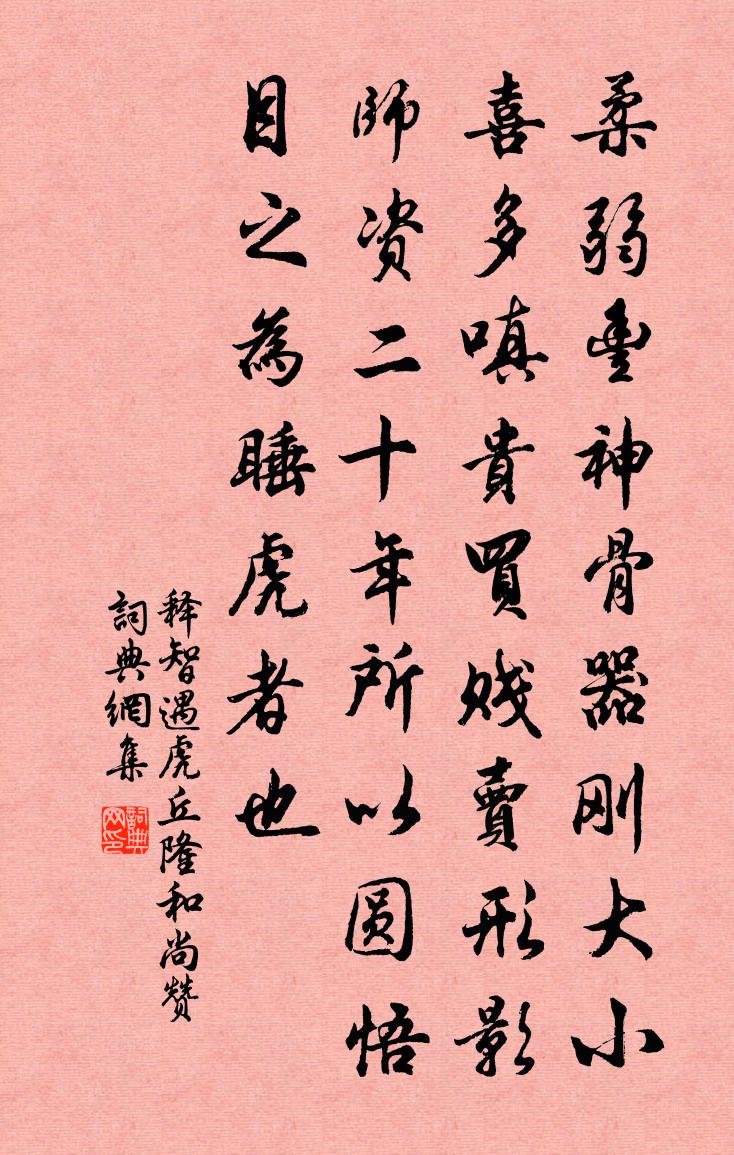 柔弱豊神骨器刚大小
喜多嗔貴買贱賣形影
師资二十年所以圆悟
目之為睡虎者也
释智遇虎丘隆和尚赞
詞典網集
詞典网印